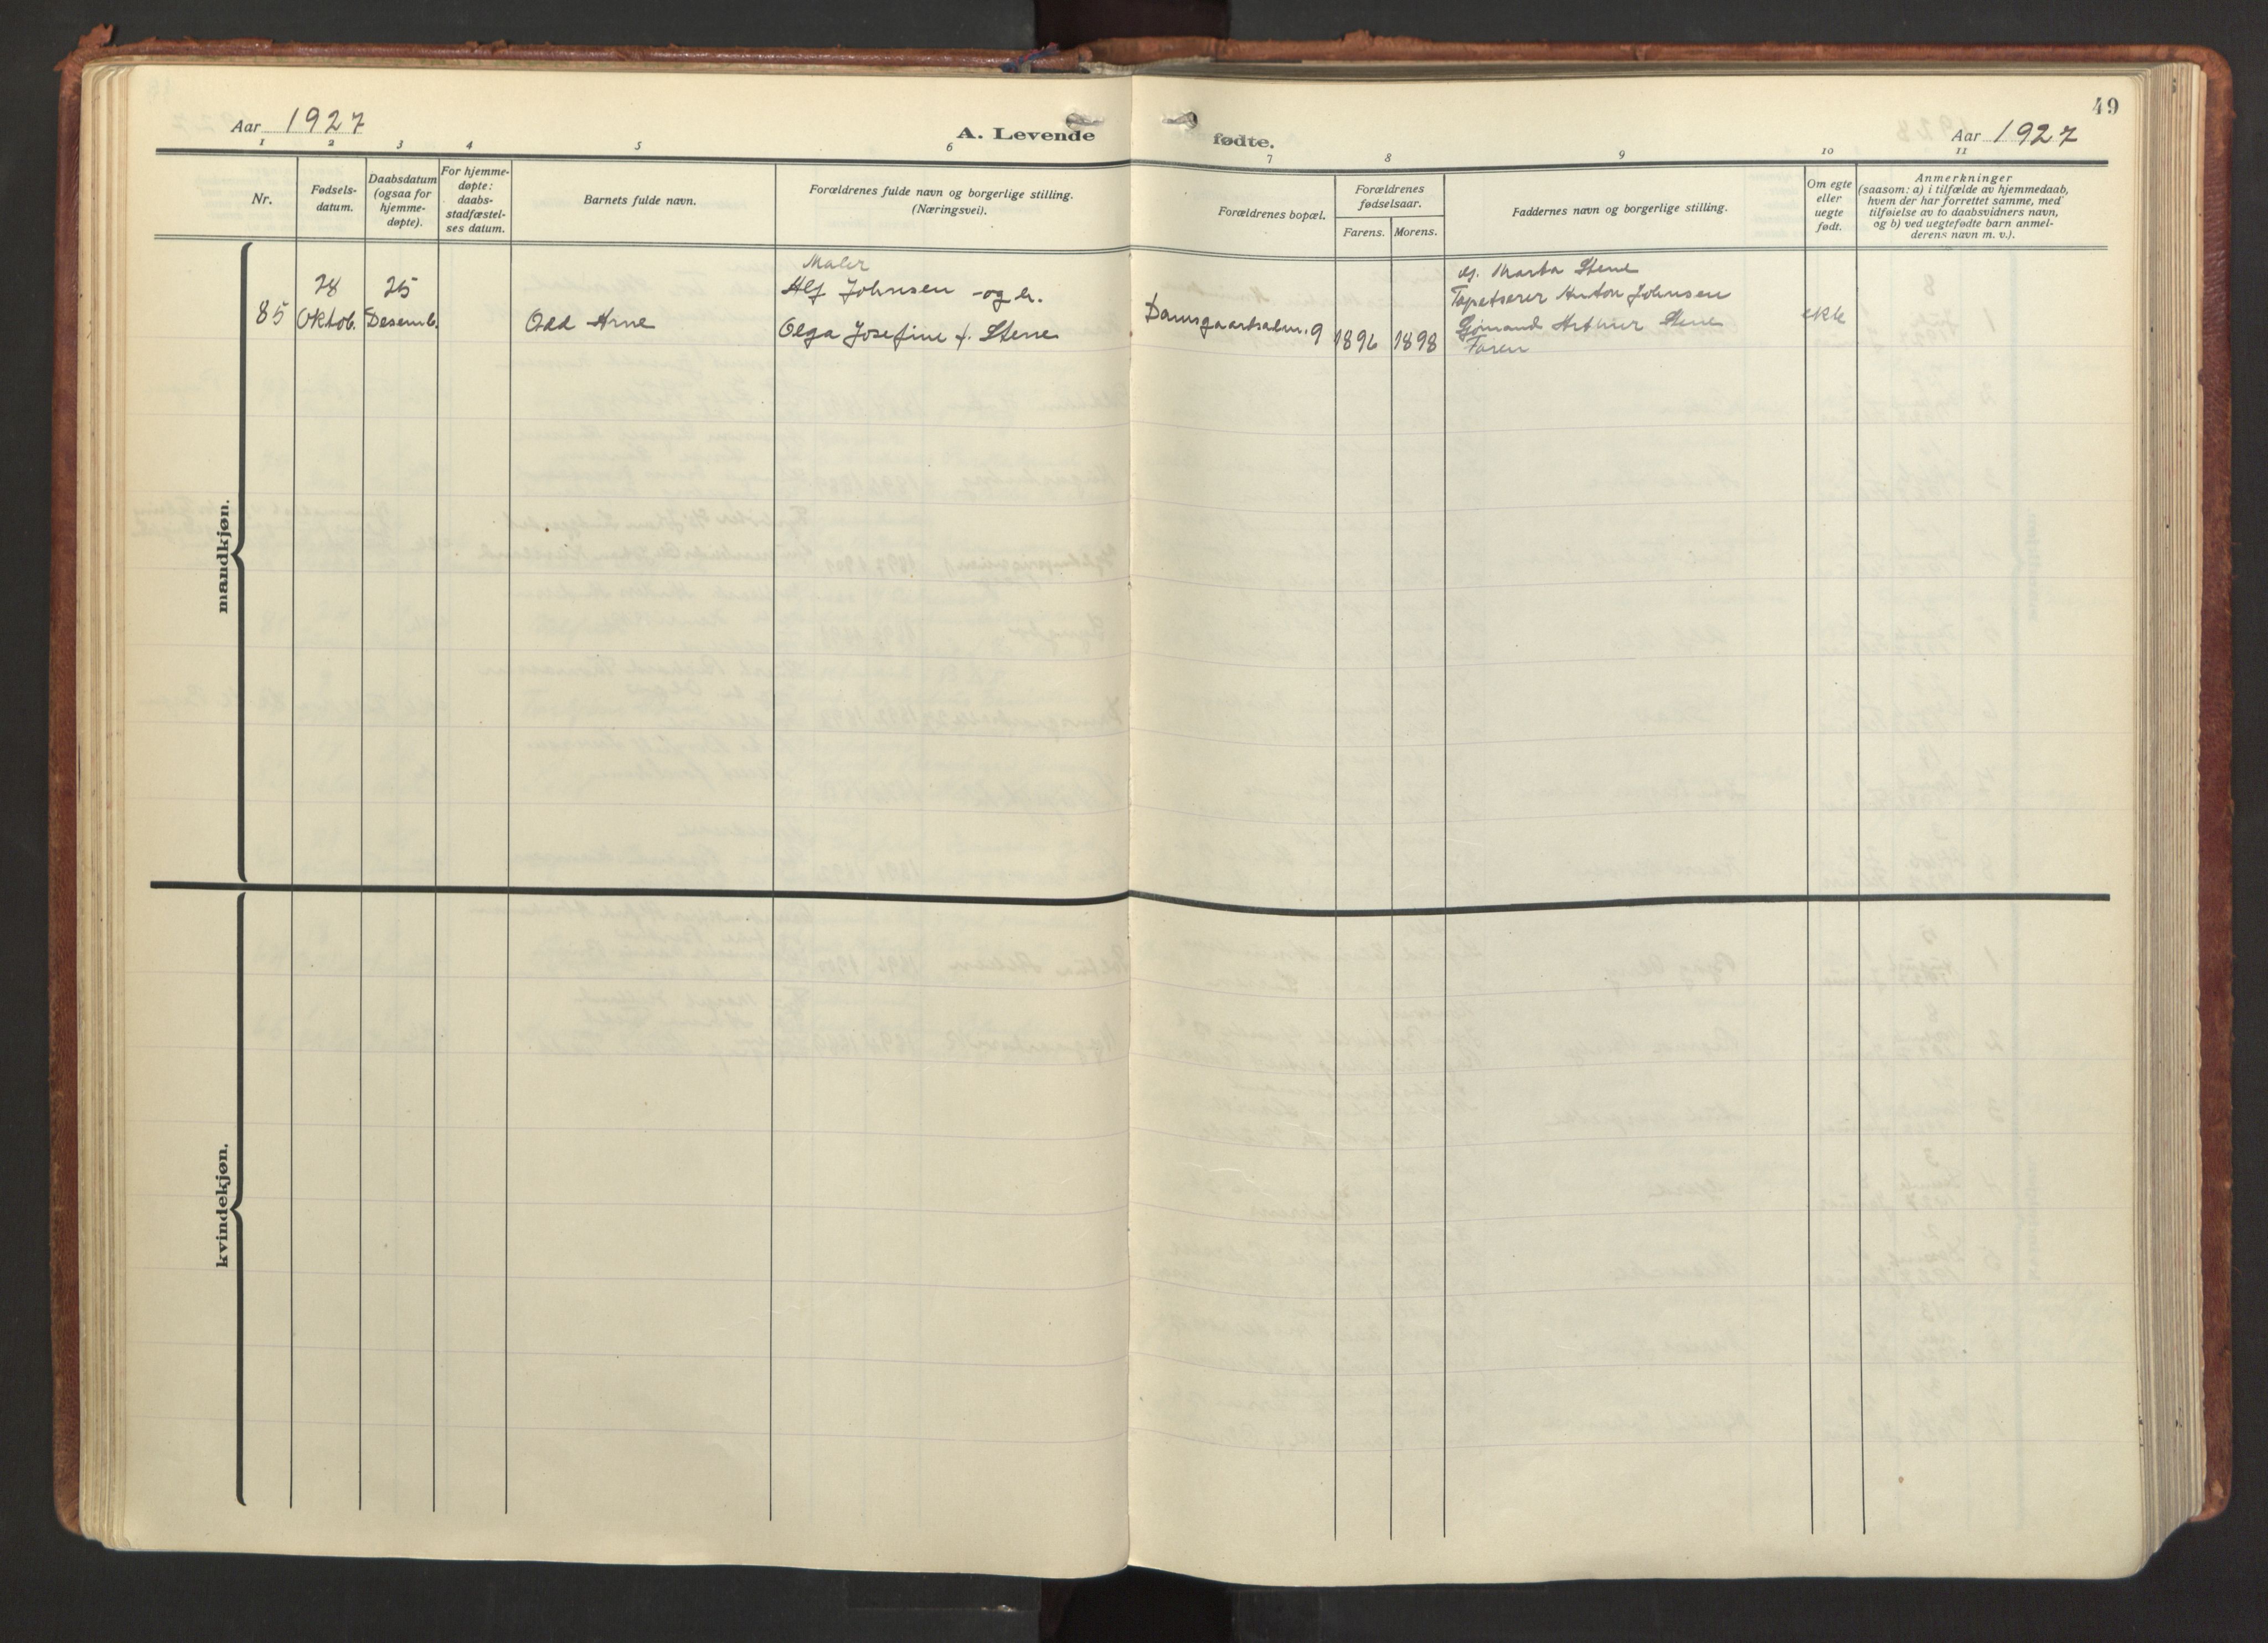 Aar 1927
A. Levende fødte.
Aar 1927
49
1 2 3 4 5 6 7 8 9 10 11
Nr.
Fødsels-
datum.
Daabsdatum
(ogsaa for
hjemme-
døpte).
For hjemme-
døpte:
daabs-
stadfæstel-
ses datum.
Barnets fulde navn.
Forældrenes fulde navn og borgerlige stilling.
(Næringsvei).
Forældrenes bopæl.
Forældrenes
fødselsaar.
Farens. Morens.
Faddernes navn og borgerlige stilling.
Om egte
eller
uegte
født.
Anmerkninger
(saasom: a) i tilfælde av hjemmedaab,
hvem der har forrettet samme, med
tilføielse av to daabsvidners navn,
og b) ved uegtefødte barn anmel-
derens navn m. v.).
mandkjøn.
85
28
Oktob.
25
Desemb.
Odd Arne
Maler
Alf Johnsen og h.
Olga Josefine f. Stene
Damsgaardsalm. 9
1896
1898
Marta Stene
Tapetserer Anton Johnsen
Sjømand Arthur Stene
Faren
ekte
kvindekjøn.